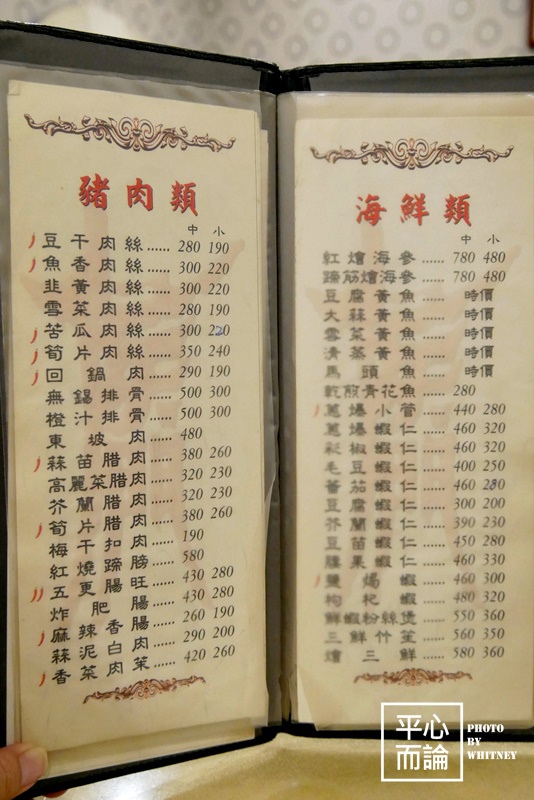 豬肉類
中 小
豆干肉絲...... 280 190
魚香肉絲...... 300 220
韭黃肉絲...... 300 220
雪菜肉絲...... 280 190
苦瓜肉絲...... 300 220
筍片肉絲...... 350 240
回鍋肉...... 290 190
無錫排骨...... 500 300
橙汁排骨...... 500 300
東坡肉...... 480
蒜苗腊肉...... 380 260
高麗菜腊肉...... 320 230
芥蘭腊肉...... 320 230
筍片腊肉...... 380 260
梅干扣肉...... 190
紅燒蹄膀...... 580
五更腸旺...... 430 280
炸肥腸...... 430 280
麻辣香腸...... 260 190
蒜泥白肉...... 290 200
香菜肉茉...... 420 260
海鮮類
中 小
紅燴海參...... 780 480
蹄筋燴海參...... 780 480
豆腐黃魚...... 時價
大蒜黃魚...... 時價
雪菜黃魚...... 時價
清蒸黃魚...... 時價
馬頭魚...... 時價
乾煎青花魚...... 280
蔥爆小管...... 440 280
蔥爆蝦仁...... 460 320
彩椒蝦仁...... 460 320
毛豆蝦仁...... 400 250
蕃茄蝦仁...... 460 280
豆腐蝦仁...... 300 200
芥蘭蝦仁...... 390 230
豆苗蝦仁...... 450 280
腰果蝦仁...... 460 330
鹽焗蝦...... 460 300
枸杞蝦...... 480 320
鮮蝦粉絲煲...... 550 360
三鮮竹笙...... 560 350
燴三鮮...... 580 360
平心而論
PHOTO
BY
WHITNEY